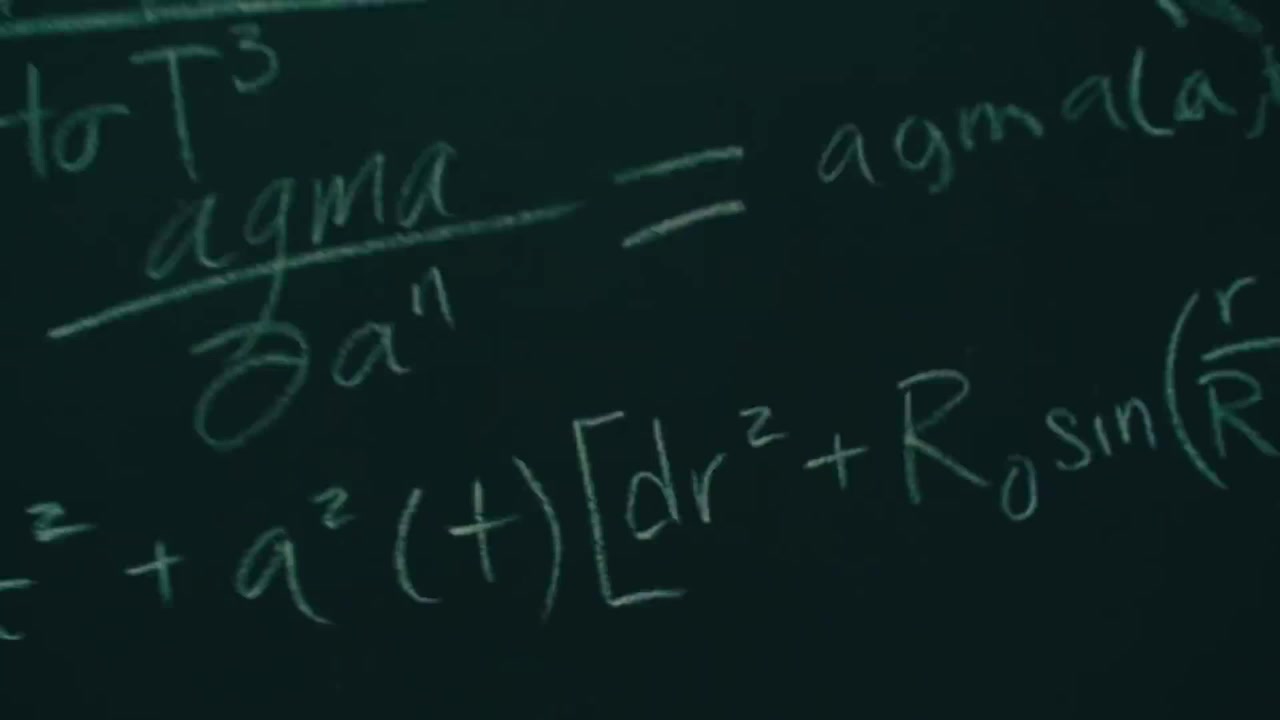 to T³
agma / ∂aⁿ = agma(a,t
² + a²(t)[dr² + R₀ sin(r/R